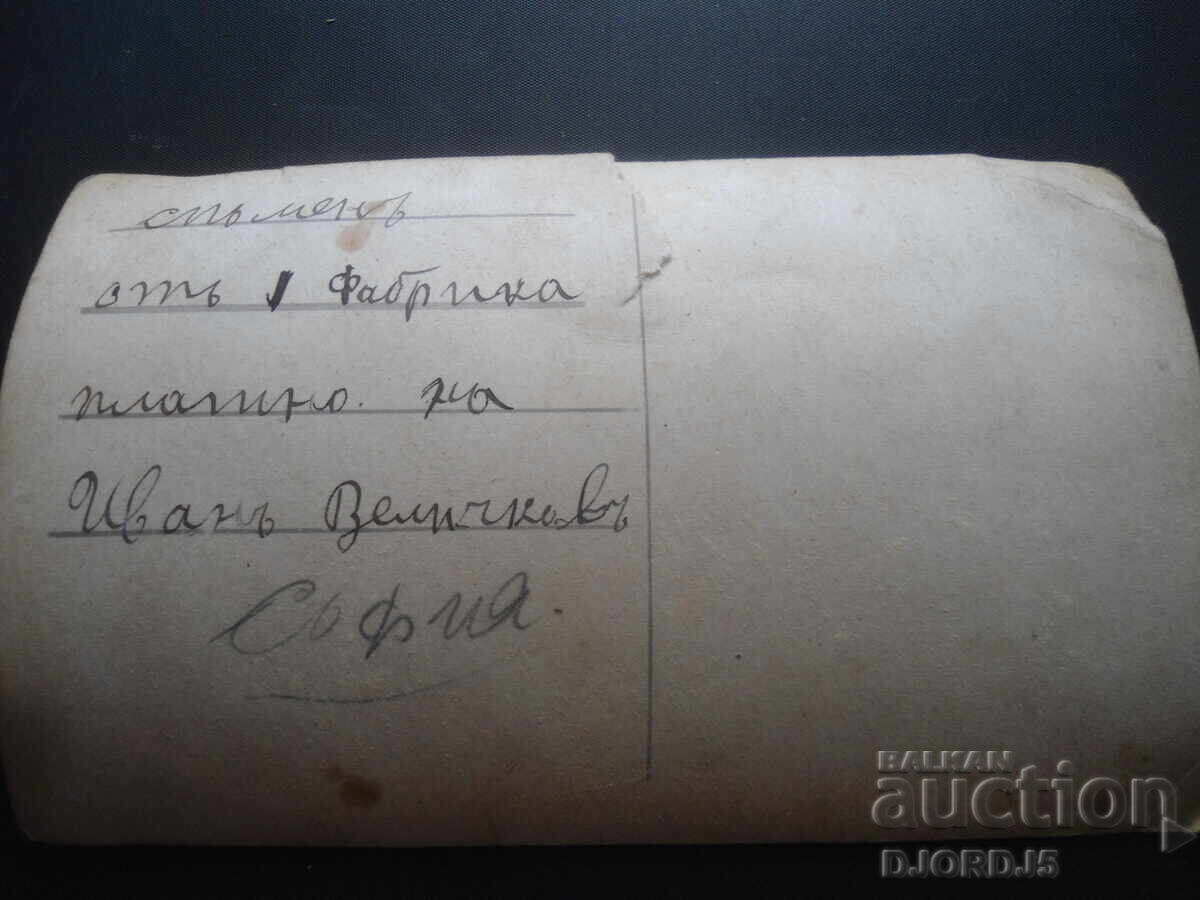 спомень
отъ 1 Фабрика
платно. на
Иванъ Величковъ
София.
BALKAN
auction
DJORDJ5